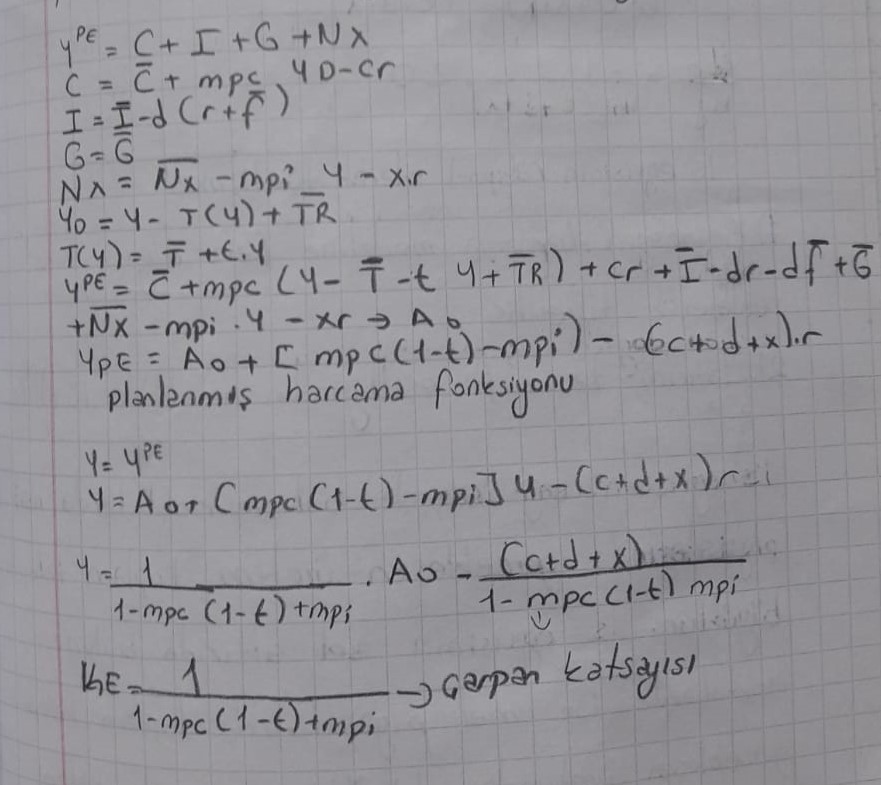 y^PE = C + I + G + Nx
C = C̄ + mpc YD - cr
I = Ī - d (r + f̄)
G = Ḡ
Nx = N̄x̄ - mpi Y - x.r
YD = Y - T(Y) + T̄R̄
T(Y) = T̄ + t.Y
Y^PE = C̄ + mpc (Y - T̄ - t Y + T̄R̄) + cr + Ī - dr - df̄ + Ḡ
+ N̄x̄ - mpi . Y - xr → A0
YPE = A0 + [ mpc (1-t) - mpi) - (c + d + x).r
planlanmış harcama fonksiyonu
Y = Y^PE
Y = A0 + [ mpc (1-t) - mpi ] Y - (c + d + x) r
Y = 1 / (1 - mpc (1-t) + mpi) . A0 - (c + d + x) / (1 - mpc (1-t) mpi)
kE = 1 / (1 - mpc (1-t) + mpi) → Çarpan katsayısı